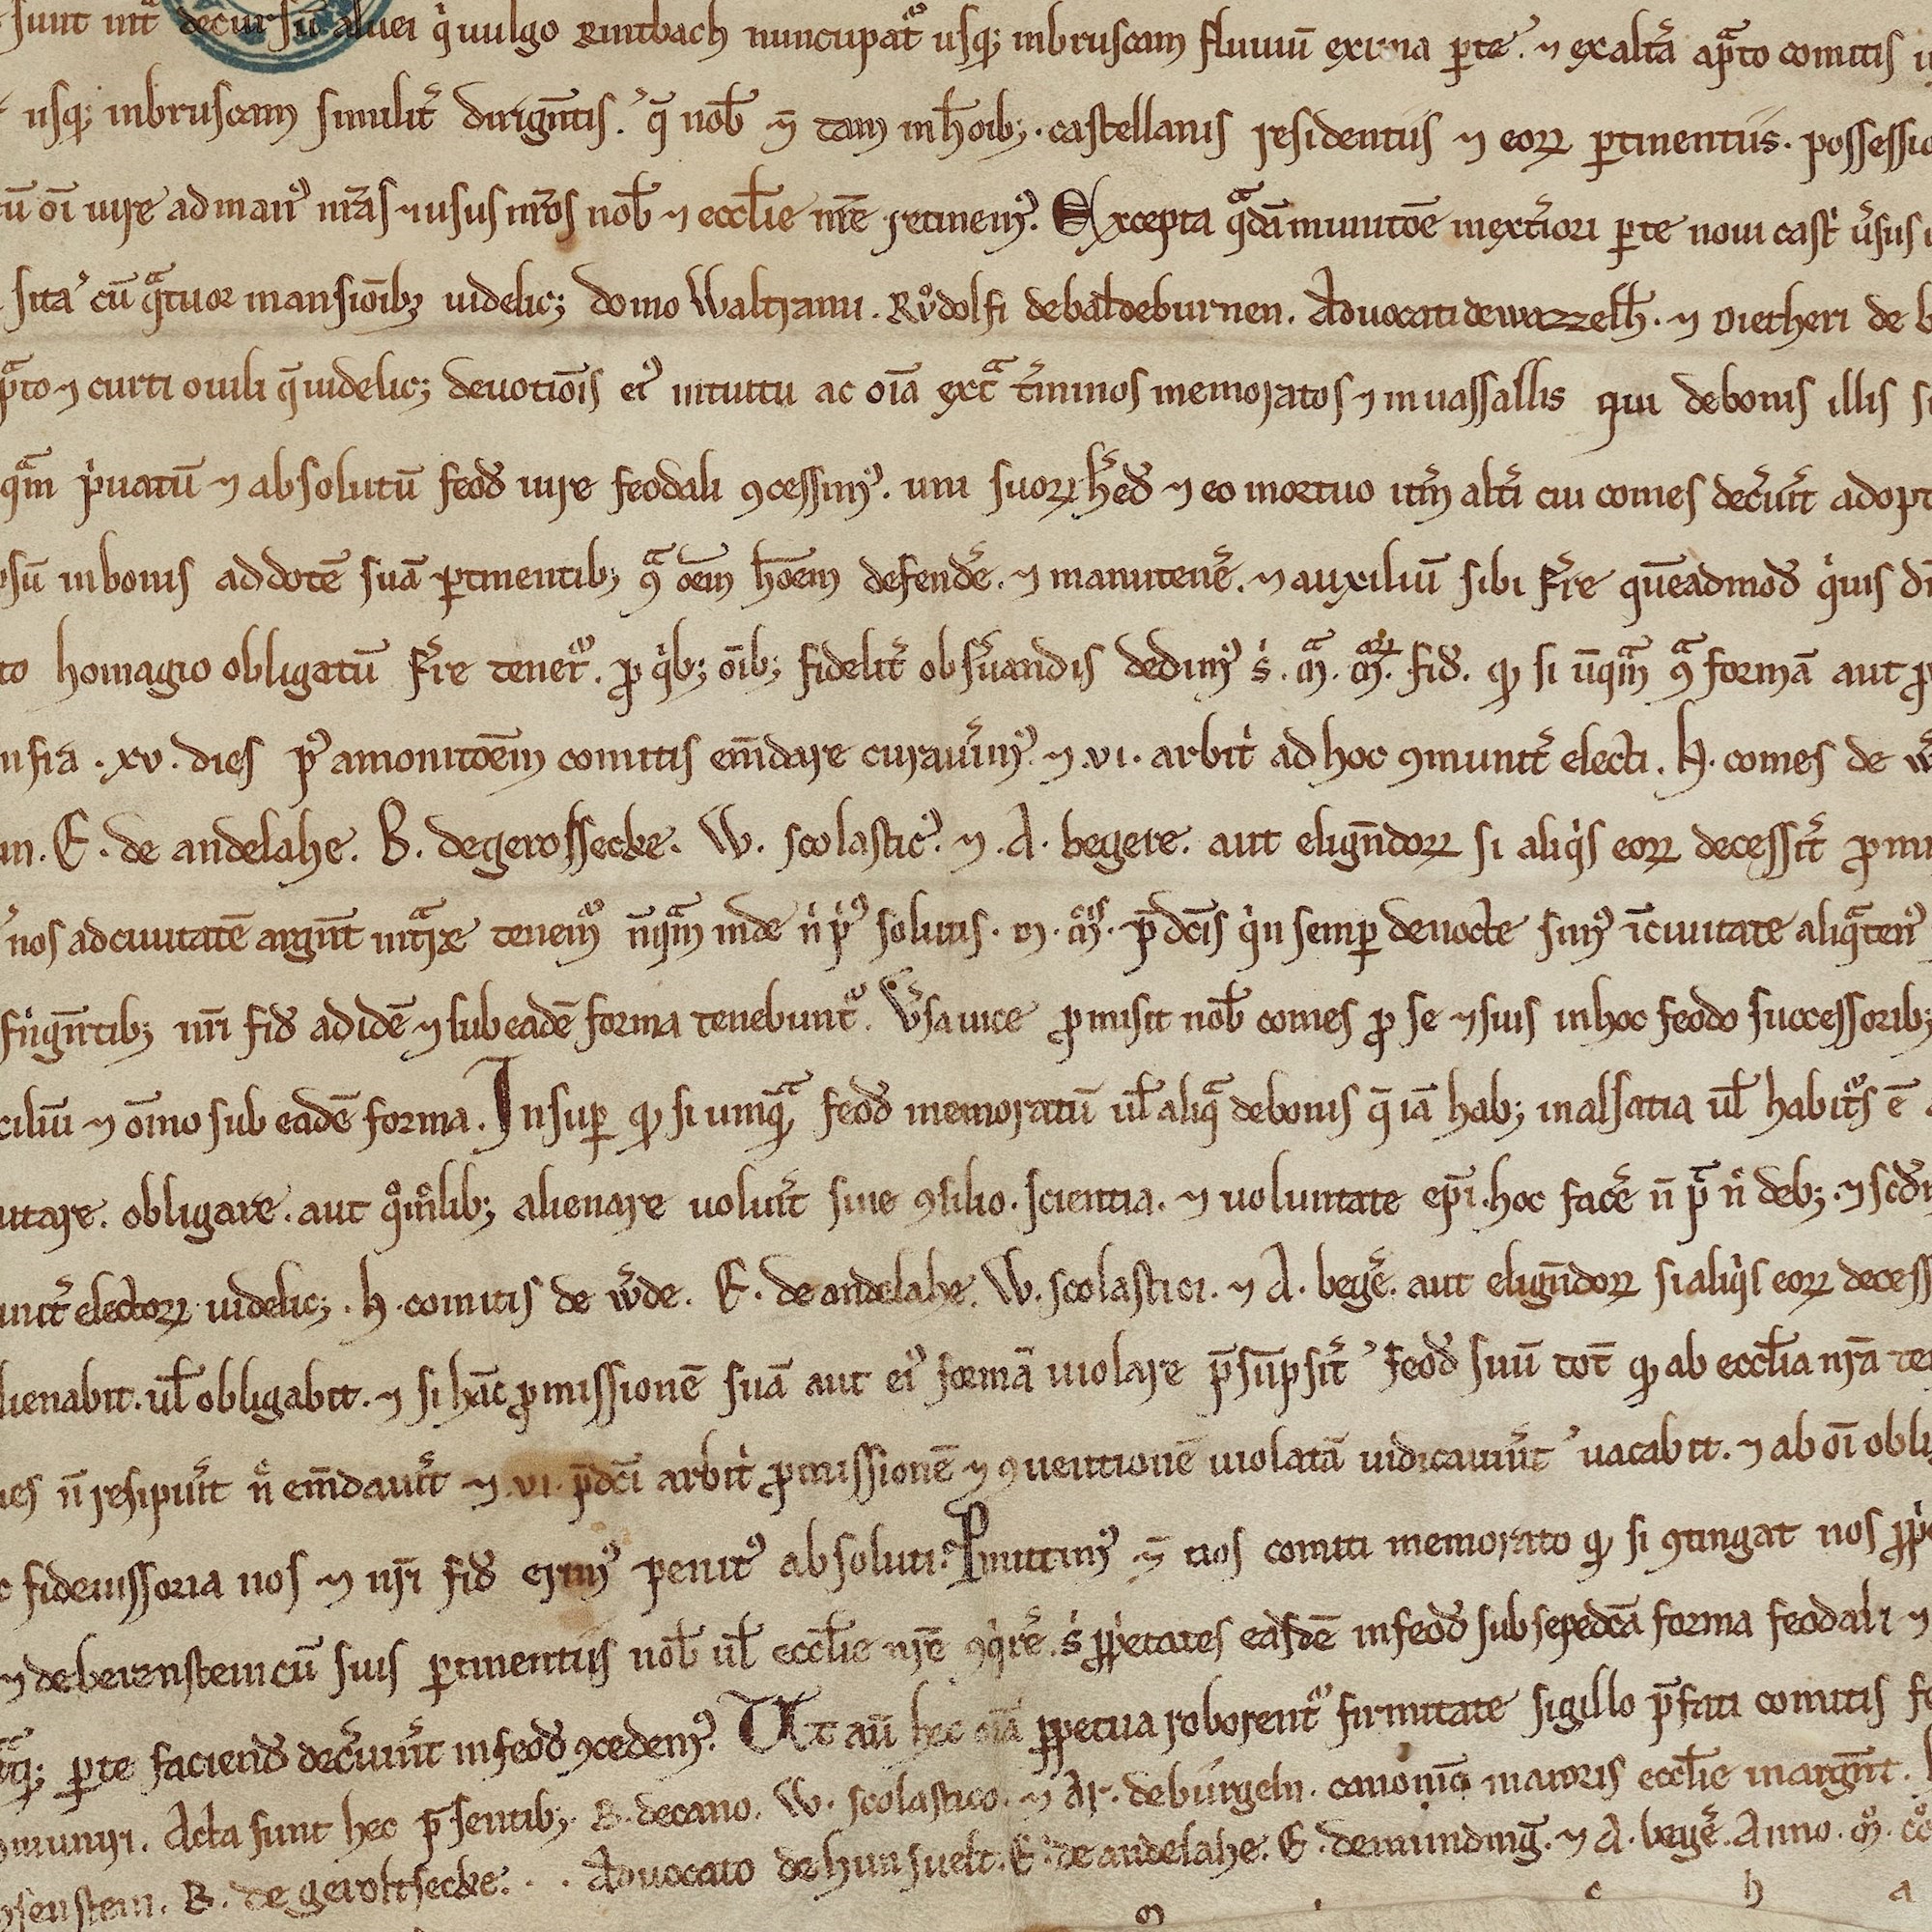 sunt int̄ decursū aluei q̇ uulgo Rintbach nuncupat᷑ usq; inbruscam fluuiū ex una ꝑte. ⁊ ex alt̄a aꝑto comitis
usq; inbruscam similit̄ dirign̄tis. q̄ nob̄ ⁊ tam inh̄oib;. castellanis residentiis ⁊ eoꝝ ꝑtinentiis. possessio
cū oī iure ad manꝰ nr̄as ⁊ usus nr̄os nob̄ ⁊ eccl̄ie nr̄e retinemꝰ. Excepta qᵃdā munitōe inext̄iori ꝑte noui castˡ ūsus
sita cū qᵃtuor mansioīb; uidelic; domo Waltrami. Růdolfi debaldeburnen. Aduocati dewazzelh̄. ⁊ Dietheri de b
pᵃto ⁊ curti ouili q̄ uidelic; deuotiōis eiꝰ intuitu ac oīa extᵃ t̄minos memoratos ⁊ in uassallis qui debonis illis
qᵃm p̍uatū ⁊ absolutū feod̄ iure feodali ꝯcessimꝰ. uni suoꝝ h̄ed̄ ⁊ eo mortuo itm̄ alt̄i cui comes dec̄uit̄ adopt
sū inbonis addotē suā ꝑtinentib; ꝯᵃ oēm hoēm defend̄e. ⁊ manuten̄e. ⁊ auxiliū sibi f̄re quēadmod̄ q̍uis
to homagio obligatū f̄re tenet᷑. ꝓ q̍b; oīb; fidelit̄ obs̄uandis dedimꝰ s̍. fid̄. qꝫ si ūqᵃm ꝯᵃ formā aut
infrā .xv. dies pꝰ amonitōem comitis em̄dare curau̅imꝰ ⁊ .vi. arbit̍ ad hoc ꝯmunit̄ electi. H. comes de w̄
E. de andelahe. B. degerossecke. W. scolasticꝰ. ⁊ .A. begere. aut elign̄doꝝ si aliq̍s eoꝝ decessit̄ ꝓmi
nos adciuitatē argn̄t intᵃre tenem᷑ nūqᵃm inde n̍ p̍ꝰ solutis. p̄dc̄is q̍n semp̱ denocte simꝰ īciuitate aliqᵃtenꝰ
f̍ngn̄tib; nr̄i fid̄ ad idē ⁊ sub eadē forma tenebunt᷑. V̄sauice ꝓmisit nob̄ comes ꝓ se ⁊ suis inhoc feodo successorib;
ciliū ⁊ oīno sub eadē forma. Insuꝑ qꝫ si umqᵃ feod̄ memoratū ul̄ aliqᵃ debonis q̄ iā hab; inalsatia ul̄ habit᷑s ē
utare. obligare. aut qͦm̊lib; alienare uoluit̄ sine ꝯsilio. scientia. ⁊ uoluntate ep̄i. hoc fac̄e n̄ pᵃ n̊ deb;. ⁊
unit̄ electoꝝ uidelic;. h. comitis de w̄de. E. de andelahe. W. scolastici. ⁊ A. beḡe. aut elign̄doꝝ si aliq̍s eoꝝ decess
lienabit. ul̄ obligabit. ⁊ si hāc ꝓmissionē suā aut eiꝰ formā uiolare p̄sūpsit̄ feod̄ suū tot̄ qꝫ ab eccl̄ia nr̄a te
n̄ resipuit̄ n̊ em̄dauit̄ ⁊ .vi. p̄dc̄i arbit̍ ꝓmissionē ⁊ ꝯuentionē uiolatā iudicauiūt uacabit. ⁊ ab oī obli
fideiussoria nos ⁊ nr̄i fid̄ erimꝰ penitꝰ absoluti. Pmittimꝰ ⁊ nos comiti memorato qꝫ si ꝯtingat nos
⁊ deberenstein cū suis ꝑtinentiis nob̄ ul̄ eccl̄ie nr̄e ꝯq̍r̄e. s̍ ꝓp̍etates easdē infeod̄ sub sepedc̄a forma feodali ⁊
ꝑte faciend̄ dec̄uiūt infeod̄ ꝯcedemꝰ. Ut aū hec oīa ꝑpetua roborent᷑ firmitate sigillo p̄fati comitis
muniri. Acta sunt hec p̄sentib;. B. decano. W. scolastico. ⁊ Ar. debúrgeln. canonic̄ maioris eccl̄ie inargn̄t.
senstein. B. de geroltsecke. . . Aduocato de hunsuelt. E. de andelahe. E. demundinḡ. ⁊ A. beḡe. Anno.